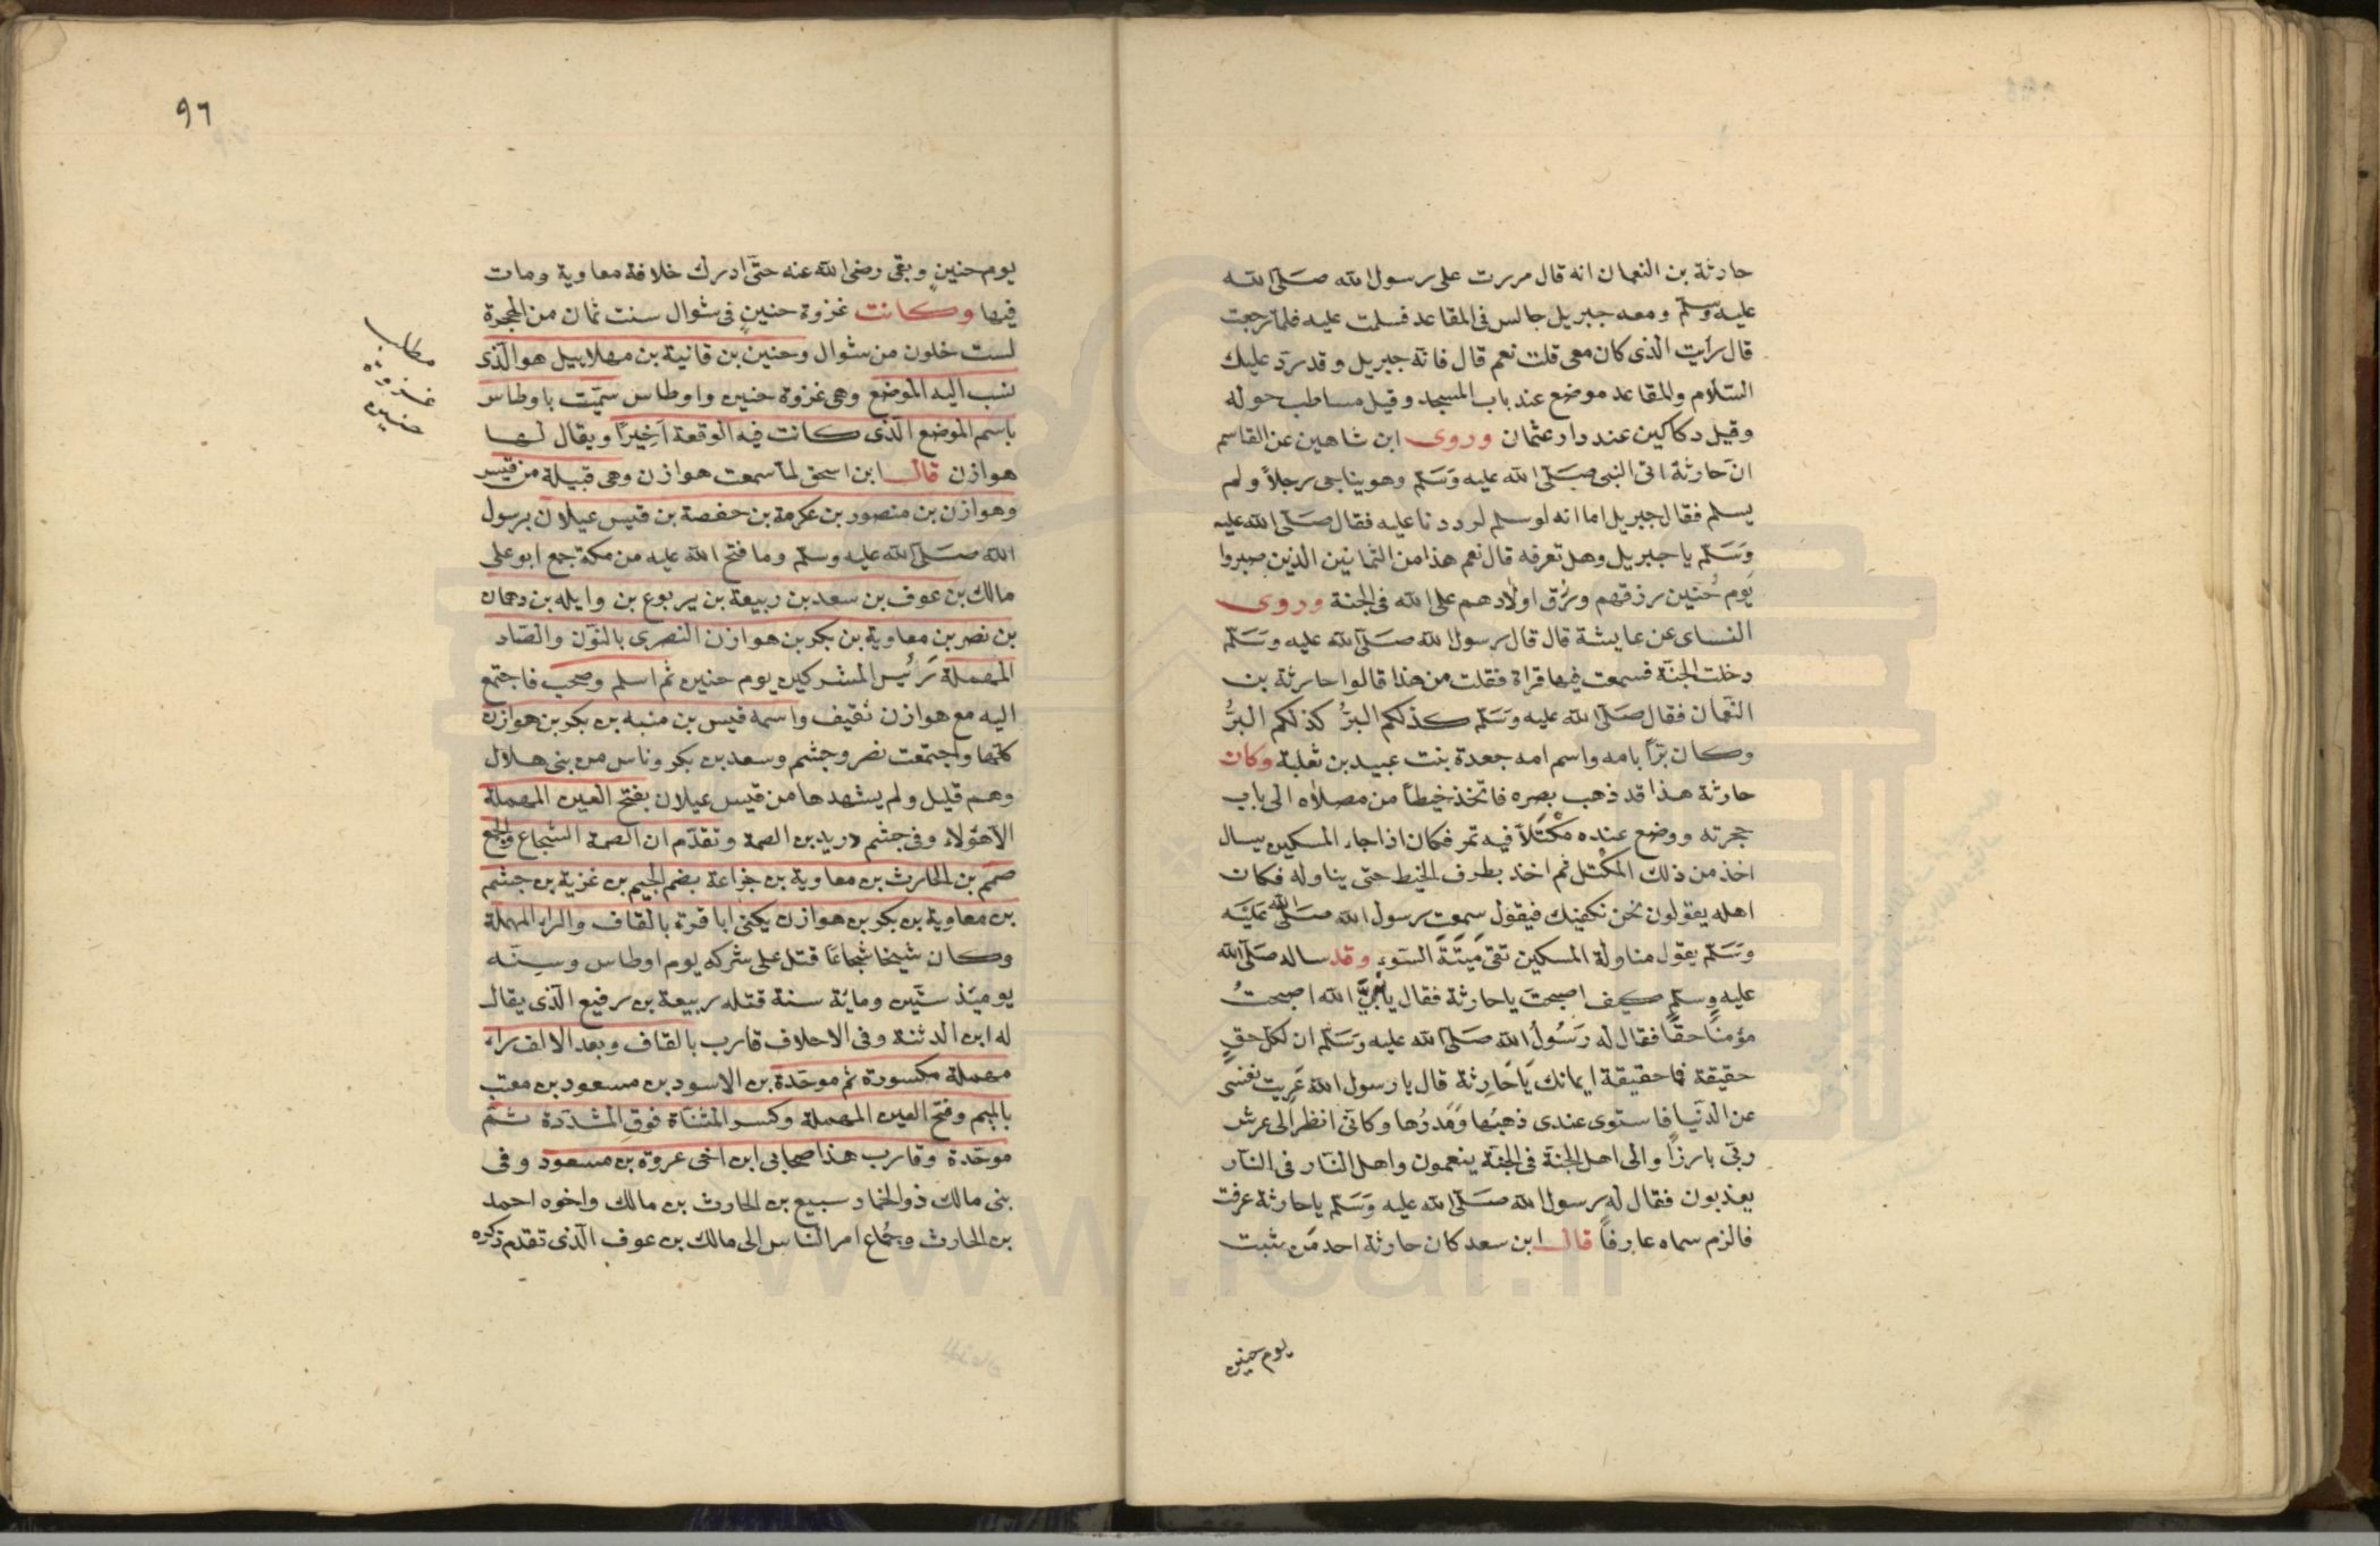 حارثة بن النعمان انه قال مررت على رسول الله صلى الله
عليه وسلم ومعه جبريل جالس فى المقاعد فسلمت عليه فلما رجعت
قال رايت الذى كان معى قلت نعم قال فانه جبريل وقد رد عليك
السلام والمقاعد موضع عند باب المسجد وقيل مساطب حوله
وقيل دكاكين عند دار عثمان وروى ابن شاهين عن القاسم
ان حارثة اتى النبى صلى الله عليه وسلم وهو يناجى رجلاً ولم
يسلم فقال جبريل اما انه لو سلم لرددنا عليه فقال صلى الله عليه
وسلم يا جبريل وهل تعرفه قال نعم هذا من الثمانين الذين صبروا
يوم حُنين رزقهم ورزق اولادهم على الله فى الجنة وروى
النساى عن عايشة قال قال رسول الله صلى الله عليه وسلم
دخلت الجنة فسمعت فيها قراة فقلت من هذا قالوا حارثة بن
النعمان فقال صلى الله عليه وسلم كذلكم البرُّ كذلكم البرُّ
وكان برّاً بامه واسم امه جعدة بنت عبيد بن ثعلبة وكان
حارثة هذا قد ذهب بصره فاتخذ خيطاً من مصلاه الى باب
حجرته ووضع عنده مكْتَلاً فيه تمر فكان اذا جاء المسكين يسال
اخذ من ذلك المكتل ثم اخذ بطرف الخيط حتى يناوله فكان
اهله يقولون نحن نكفيك فيقول سمعت رسول الله صلى الله عليه
وسلم يقول مناولة المسكين تقى مَيتَةَ السَوءِ وقد ساله صلى الله
عليه وسلم كيف اصبحت يا حارثة فقال يا نبىَّ الله اصبحتُ
مؤمناً حقاً فقال له رَسُولُ الله صلى الله عليه وسلم ان لكل حقٍ
حقيقة فما حقيقة ايمانك يَا حَارِثة قال يا رسول الله عَرِيت نفسى
عن الدنيا فاستوى عندى ذهبُها وَمَدرُها وكانى انظر الى عرش
ربى بارزاً والى اهل الجنة فى الجنة ينعمون واهل النار فى النار
يعذبون فقال له رسول الله صلى الله عليه وسلم يا حارثة عرفت
فالزم سماه عارفاً قال ابن سعد كان حارثة احد من ثبت
يوم حنين
٩٦
يوم حنينٍ وبقى رضى الله عنه حتى ادرك خلافة معاوية ومات
فيها وكانت غزوة حنينٍ فى شوال سنت ثمان من الهجرة
لست خلون من شوال وحنين بن قانية بن مهلاييل هو الذى
نسب اليه الموضع وهى غزوة حنين واوطاس سميت باوطاس
باسم الموضع الذى كانت فيه الوقعة اَخِيراً ويقال لها
هوازن قال ابن اسحق لما سمعت هوازن وهى قبيلة من قيس
وهوازن بن منصور بن عكرمة بن حفصة بن قيس عيلان برسول
الله صلى الله عليه وسلم وما فتح الله عليه من مكة جمع ابو على
مالك بن عوف بن سعد بن ربيعة بن يربوع بن وايله بن دهمان
بن نصر بن معاوية بن بكر بن هوازن النصرى بالنون والصاد
المهملة رَئيس المشركين يوم حنين ثم اسلم وصحب فاجتمع
اليه مع هوازن ثقيف واسمه قيس بن منبه بن بكر بن هوازن
كلها واجتمعت نصر وجشم وسعد بن بكر وناس من بنى هلال
وهم قليل ولم يشهدها من قيس عيلان بفتح العين المهملة
الا هؤلاء وفى جشم دريد بن الصمة وتقدم ان الصمة الشجاع والجمع
صمم بن الحارث بن معاوية بن جزاعة بضم الجيم بن غزية بن جشم
بن معاوية بن بكر بن هوازن يكنى ابا قرة بالقاف والراء المهملة
وكان شيخا شُجاعًا قتل على شركه يوم اوطاس وسِنّه
يوميذ ستين وماية سنة قتله ربيعة بن رفيع الذى يقال
له ابن الدثنة وفى الاحلاف قارب بالقاف وبعد الالف راء
مهملة مكسورة ثم موحدة بن الاسود بن مسعود بن معتب
بالميم وفتح العين المهملة وكسر المثناة فوق المشددة ثم
موحدة وقارب هذا صحابى ابن اخى عروة بن مسعود وفى
بنى مالك ذو الخمار سبيع بن الحارث بن مالك واخوه احمد
بن الحارث وجُماع امر الناس الى مالك بن عوف الذى تقدم ذكره
مطلب
غزوة
حنين